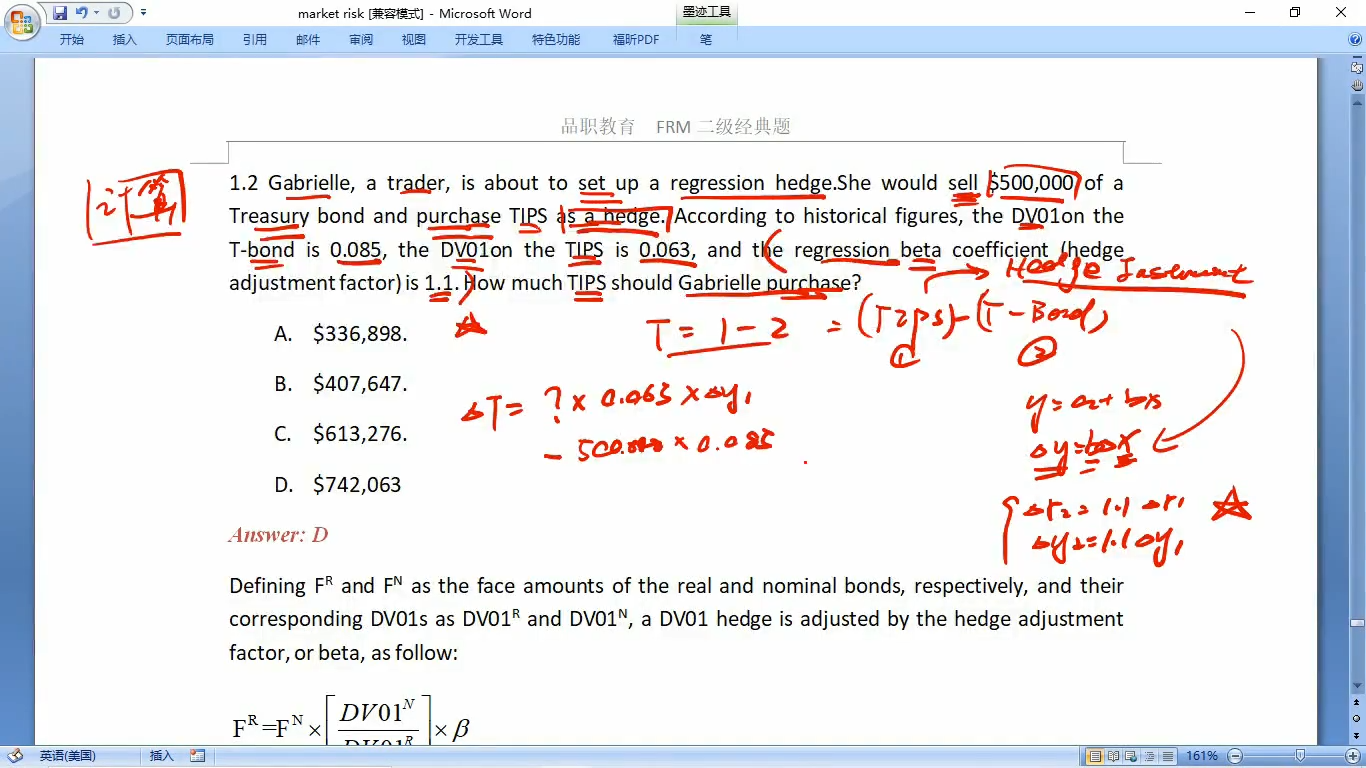 market risk [兼容模式] - Microsoft Word
墨迹工具
开始 插入 页面布局 引用 邮件 审阅 视图 开发工具 特色功能 福昕PDF 笔
品职教育 FRM 二级经典题
计算
1.2 Gabrielle, a trader, is about to set up a regression hedge.She would sell $500,000 of a
Treasury bond and purchase TIPS as a hedge. According to historical figures, the DV01on the
T-bond is 0.085, the DV01on the TIPS is 0.063, and the regression beta coefficient (hedge
adjustment factor) is 1.1. How much TIPS should Gabrielle purchase?
Hedge Instrument
A. $336,898.
T = 1 - 2 = (TIPS) - (T-Bond)
① ②
B. $407,647.
ΔT = ? × 0.063 × Δy₁
- 500.000 × 0.085
y = a + bx
Δy = bΔx
C. $613,276.
D. $742,063
Δr₂ = 1.1 Δr₁
Δy₂ = 1.1 Δy₁
Answer: D
Defining Fᴿ and Fᴺ as the face amounts of the real and nominal bonds, respectively, and their
corresponding DV01s as DV01ᴿ and DV01ᴺ, a DV01 hedge is adjusted by the hedge adjustment
factor, or beta, as follow:
Fᴿ=Fᴺ×[DV01ᴺ/DV01ᴿ]×β
英语(美国) 插入 161%